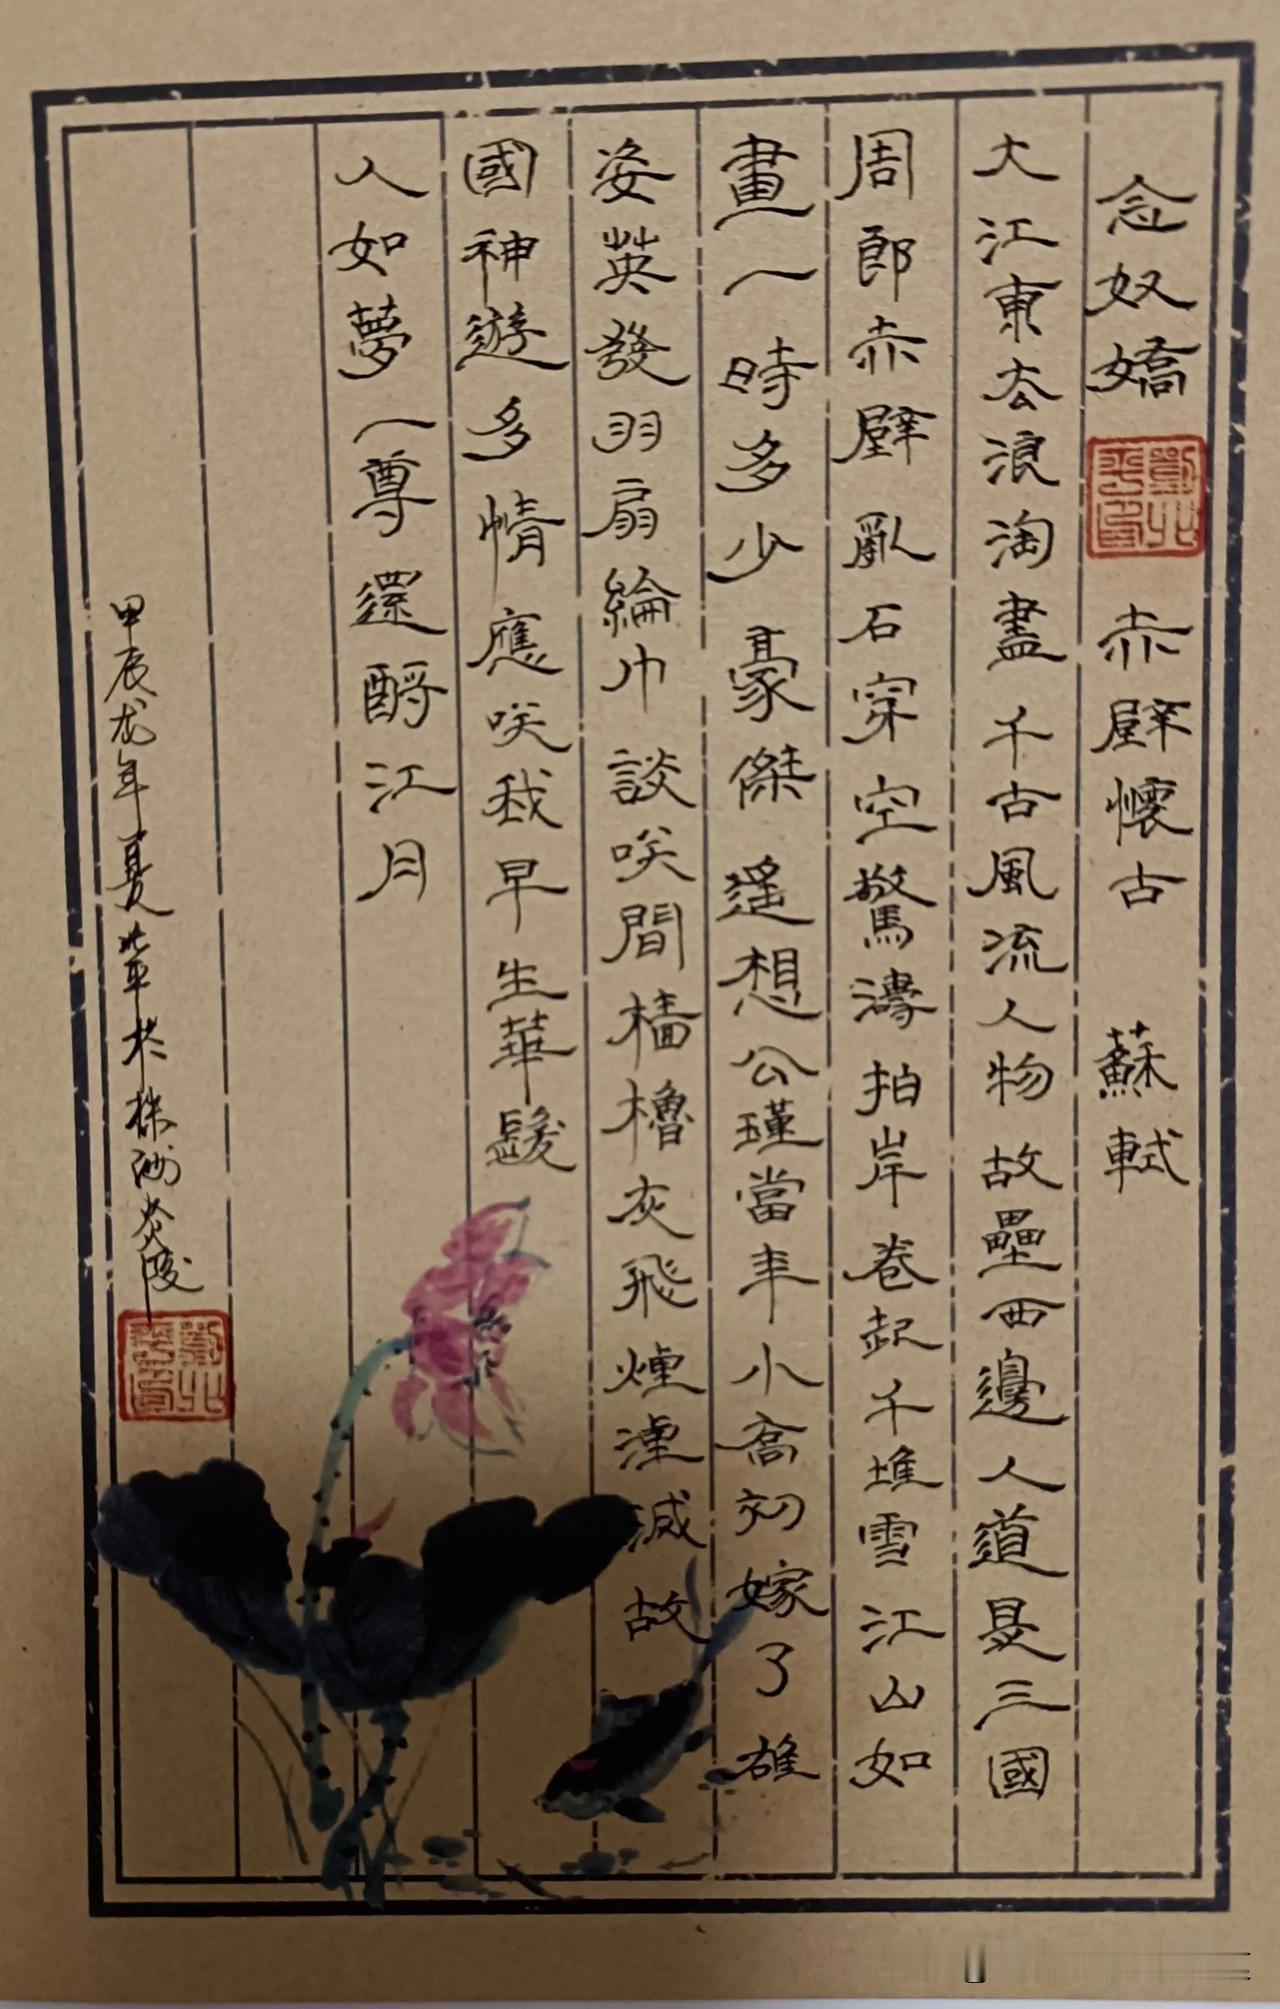 念奴嬌 赤壁懷古 蘇軾
大江東去浪淘盡千古風流人物故壘西邊人道是三國
周郎赤壁亂石穿空驚濤拍岸卷起千堆雪江山如
畫一時多少豪傑遙想公瑾當年小喬初嫁了雄
姿英發羽扇綸巾談咲間檣櫓灰飛煙湮滅故
國神遊多情應咲我早生華髮
人如夢一尊還酹江月
甲辰龙年夏北平於株洲炎陵